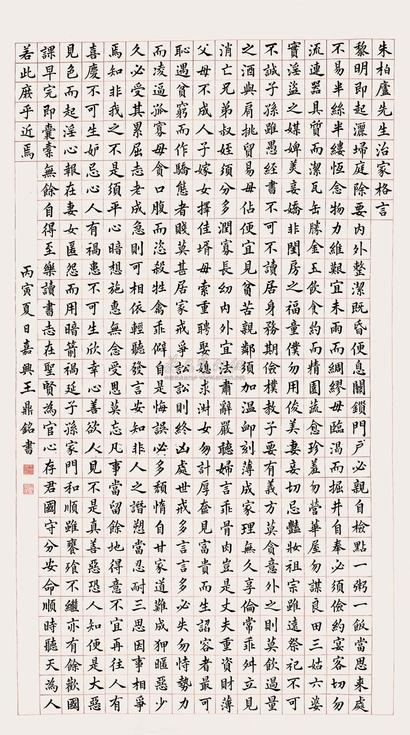 朱柏廬先生治家格言
黎明即起灑掃庭除要內外整潔既昏便息關鎖門戶必親自檢點一粥一飯當思來處
不易半絲半縷恒念物力維艱宜未雨而綢繆毋臨渴而掘井自奉必須儉約宴客切勿
流連器具質而潔瓦缶勝金玉飲食約而精園蔬愈珍羞勿營華屋勿謀良田三姑六婆
實淫盜之媒婢美妾嬌非閨房之福童僕勿用俊美妻妾切忌豔妝祖宗雖遠祭祀不可
不誠子孫雖愚經書不可不讀居身務期儉樸教子要有義方莫貪意外之財莫飲過量
之酒與肩挑貿易毋佔便宜見貧苦親鄰須加溫卹刻薄成家理無久享倫常乖舛立見
消亡兄弟叔姪須分多潤寡長幼內外宜法肅辭嚴聽婦言乖骨肉豈是丈夫重資財薄
父母不成人子嫁女擇佳壻毋索重聘娶媳求淑女勿計厚奩見富貴而生諂容者最可
恥遇貧窮而作驕態者賤莫甚居家戒爭訟訟則終凶處世戒多言言多必失勿恃勢力
而凌逼孤寡毋貪口腹而恣殺牲禽乖僻自是悔誤必多頹惰自甘家道難成狎暱惡少
久必受其累屈志老成急則可相依輕聽發言安知非人之譖愬當忍耐三思因事相爭
焉知非我之不是須平心暗想施惠無念受恩莫忘凡事當留餘地得意不宜再往人有
喜慶不可生妒忌心人有禍患不可生欣幸心善欲人見不是真善惡恐人知便是大惡
見色而起淫心報在妻女匿怨而用暗箭禍延子孫家門和順雖饔飧不繼亦有餘歡國
課早完即囊橐無餘自得至樂讀書志在聖賢為官心存君國守分安命順時聽天為人
若此庶乎近焉
丙寅夏日嘉興王鼎銘書